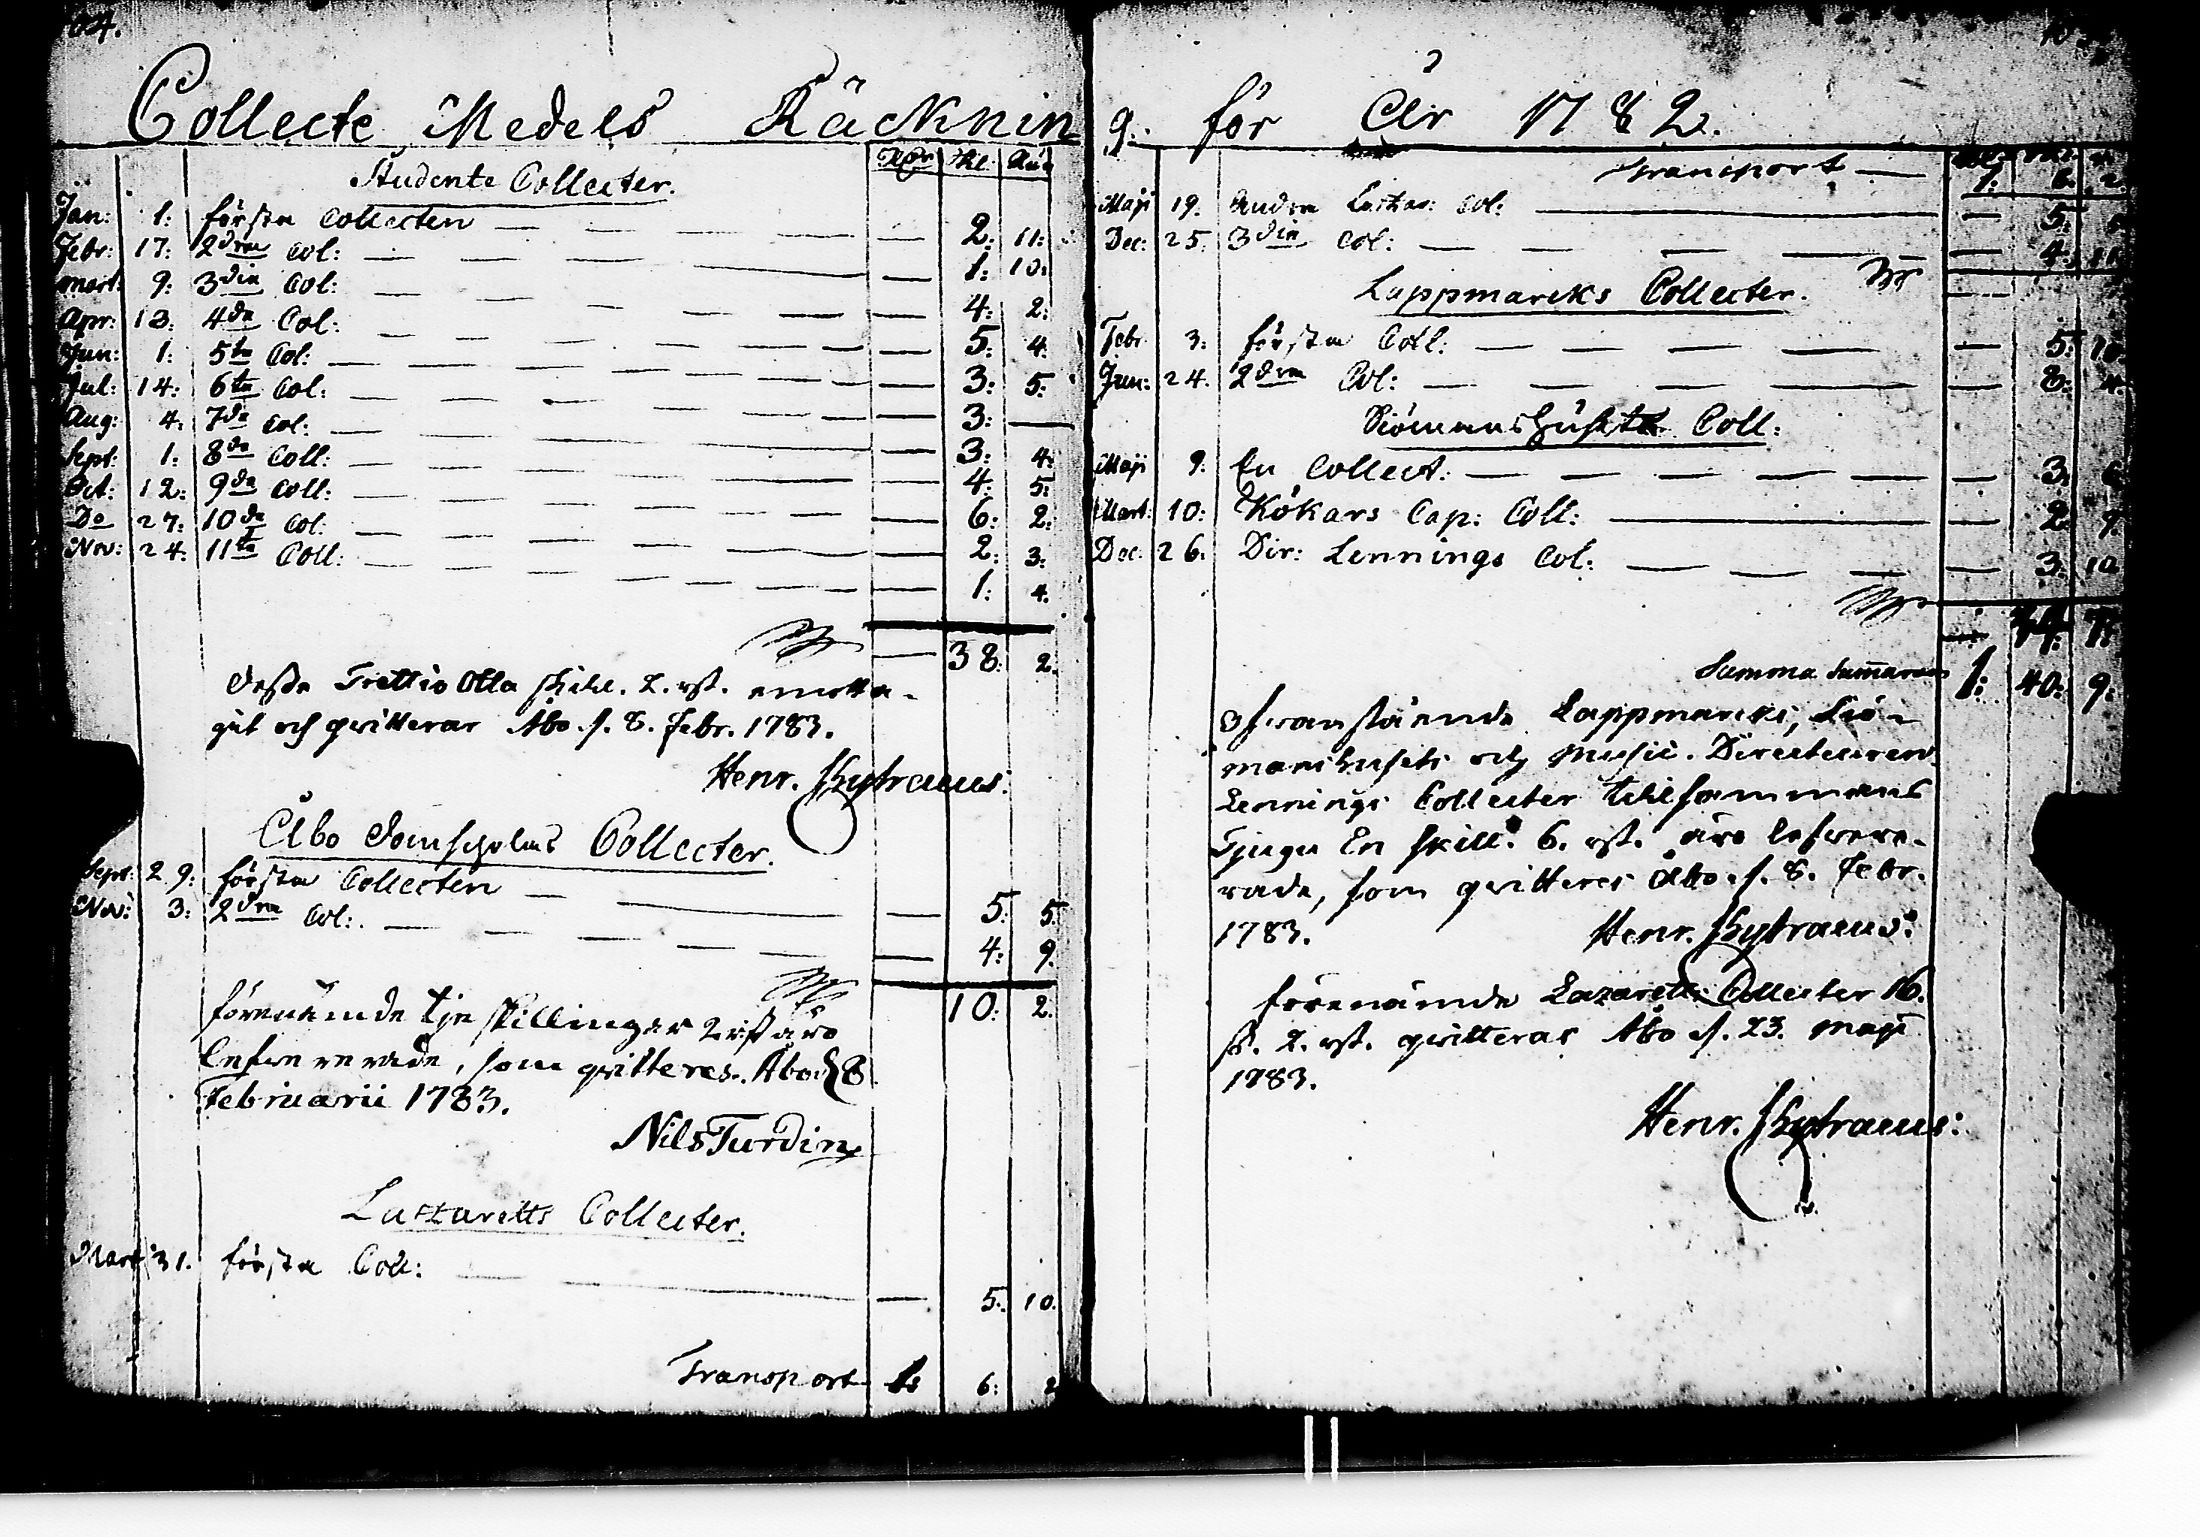 64.
Collecte Medels Räcknin
Rdr. Skl. Rust.
Studente Collecter.
Jan: 1: första Collecten — 2: 11:
Febr: 17: 2dra Col: — 1: 10:
Mart: 9: 3dia Col: — 4: 2:
Apr: 13: 4da Col: — 5: 4:
Jun: 1: 5ta Col: — 3: 5:
Jul: 14: 6ta Col: — 3: —
Aug: 4: 7de Col: — 3: 4:
Sept: 1: 8de Coll: — 4: 5:
Oct: 12: 9de Coll: — 6: 2:
Do 27: 10de Col: — 2: 3:
Nov: 24: 11ta Coll: — 1: 4.
— 38: 2.
desse Trettio Otta skill. 2. rst. emotta-
git och qvitterar Åbo d. 8. Febr. 1783.
Henr. Skytraeus:
Åbo Domscholas Collecter.
Sept: 29: första Collecten — 5: 5:
Nov: 3: 2dra Col: — 4: 9.
10: 2.
förenämde tje skillingar 2 rst äro
lefwererade, som qvitteres. Åbo d 8
Februarii 1783.
Nils Turdin
Latzaretts Collecter.
Mart 31. första Coll: — 5: 10.
Transport 1: 6: 2
g. för År 1782.
Transport — 1: 6. 2.
Maji 19. Andra Latzar: Col: — 5: 5
Dec: 25. 3dia Col: — 4: 11
Lappmarcks Collecter.
Febr 3: första Coll: — 5: 10
Jun: 24. 2dra Col: — 8: 4
Siömanshusets Coll:
Maji 9: En Collect: — 3: 6
Mart: 10: Kökars Cap: Coll: — 2: 9:
Dec: 26: Dir: Lennings Col: — 3: 10
34: 7:
Summa Summarum 1: 40: 9:
Ofwanstäende Lappmarcks, Siö-
manshusets och Music. Directeuren
Lennings Collecter tillsammans
Tjugu En skill: 6. rst. äro lefwere-
rade, som qvitteres Åbo d. 8. Febr.
1783. Henr. Skytraeus:
förenämde Lazaretts Collecter 16.
sk. 2. rst. qvitteras Åbo d. 23. Maji
1783.
Henr. Skytraeus: